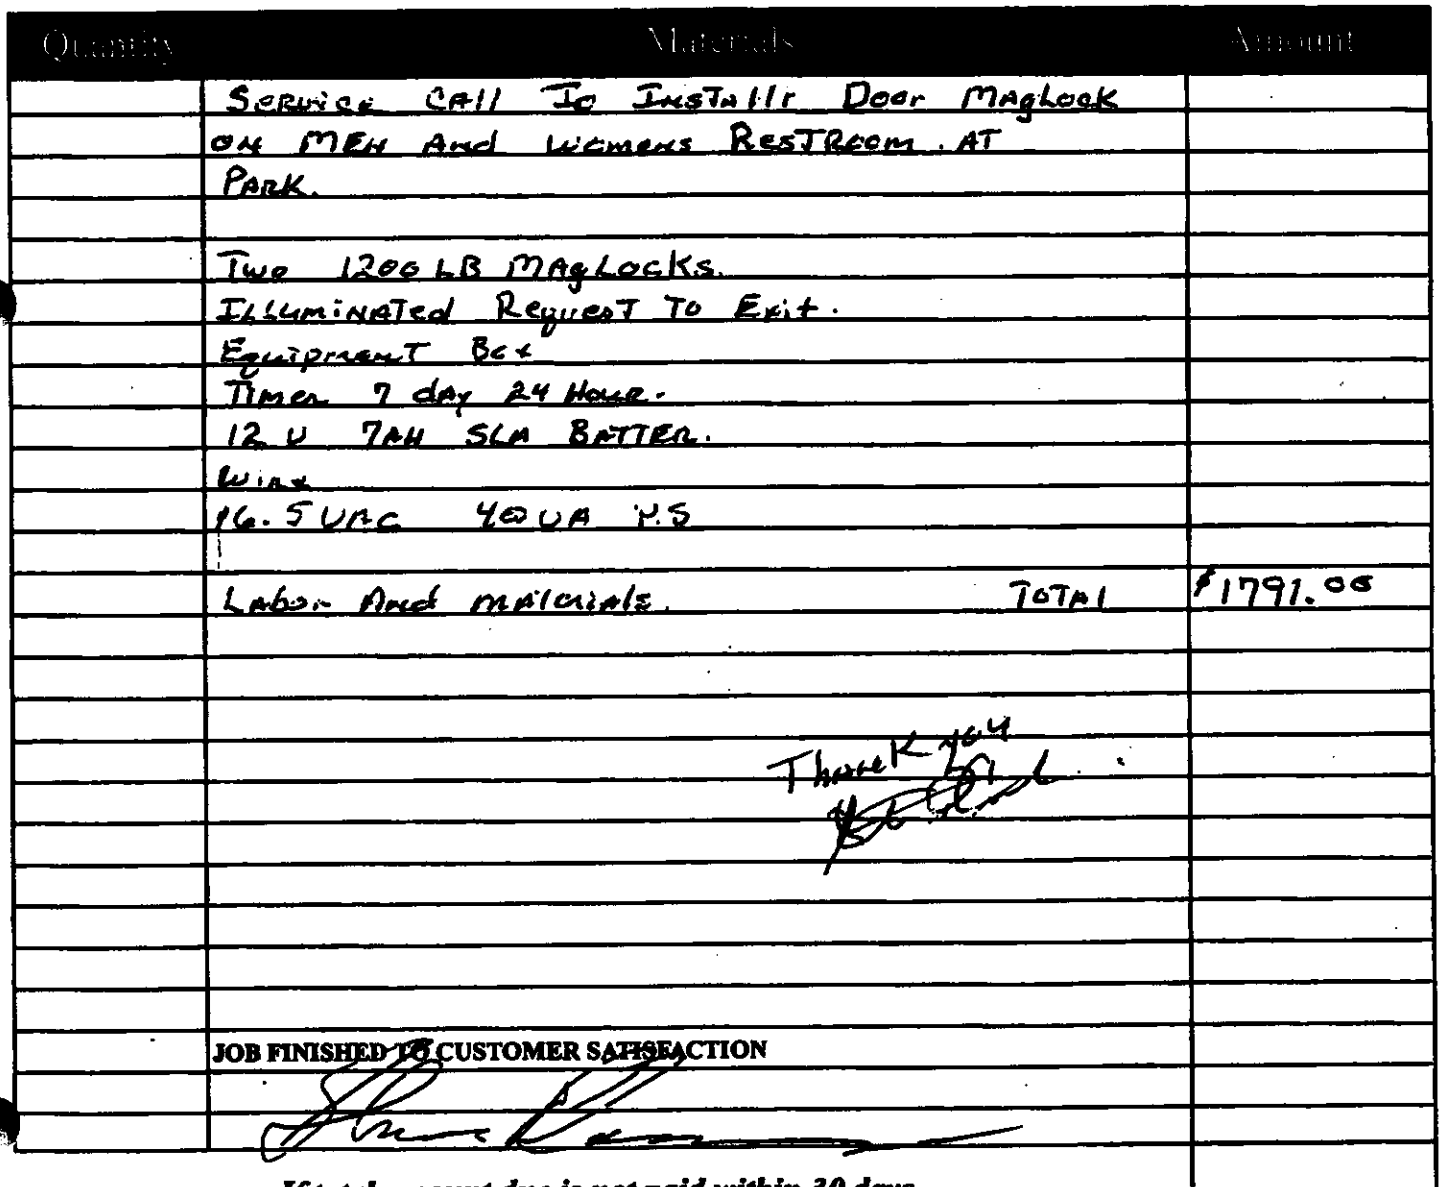 Quantity Materials Amount
Service Call To Installr Door Maglock
on Men And Womens RestRoom. AT
Park.
Two 1200 LB MagLocks.
Illuminated Request To Exit.
Equipment Box
Timer 7 day 24 Hour.
12 V 7AH SLA Batter.
Wire
16.5 VAC 40 VA P.S
Labor And materials. Total $1791.00
Thank you
JOB FINISHED TO CUSTOMER SATISFACTION
due is not paid within 30 days